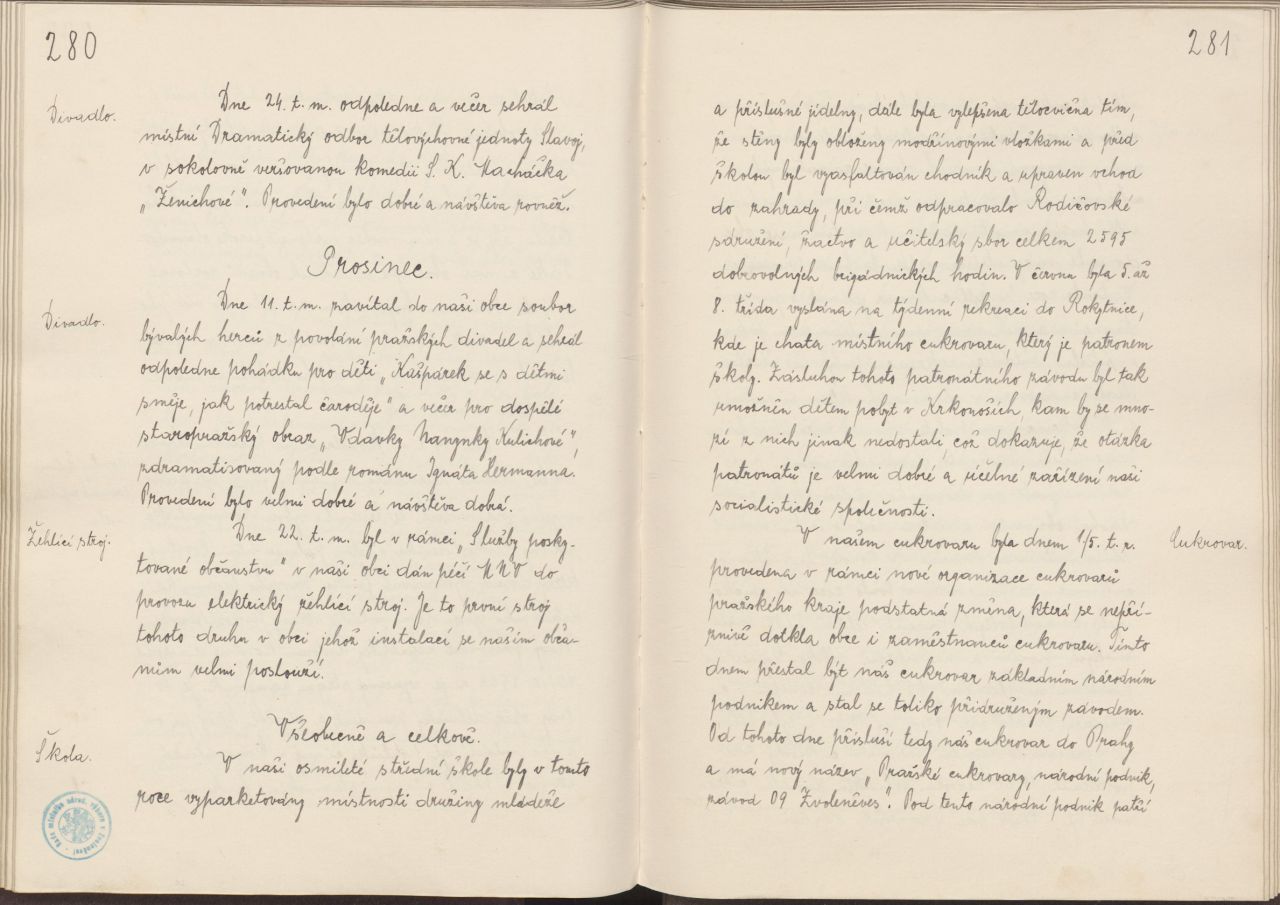 280
Divadlo.
Dne 24. t. m. odpoledne a večer sehrál
místní Dramatický odbor tělovýchovné jednoty Slavoj,
v sokolovně veršovanou komedii S. K. Macháčka
„Ženichové". Provedení bylo dobré a návštěva rovněž.
Prosinec.
Divadlo.
Dne 11. t. m. zavítal do naší obce soubor
bývalých herců z povolání pražských divadel a sehrál
odpoledne pohádku pro děti „Kašpárek se s dětmi
směje, jak potrestal čaroděje" a večer pro dospělé
staropražský obraz „Vdavky Nanynky Kulichové",
zdramatisovaný podle románu Ignáta Hermanna.
Provedení bylo velmi dobré a návštěva dobrá.
Žehlící stroj.
Dne 22. t. m. byl v rámci „Služby posky-
tované občanstvu" v naší obci dán péčí MNV do
provozu elektrický žehlící stroj. Je to první stroj
tohoto druhu v obci jehož instalací se našim obča-
nům velmi poslouží.
Všeobecně a celkově.
Škola.
V naší osmileté střední škole byly v tomto
roce vyparketovány místnosti družiny mládeže
281
a příslušné jídelny, dále byla vylepšena tělocvična tím,
že stěny byly obloženy modřínovými vložkami a před
školou byl vyasfaltován chodník a upraven vchod
do zahrady, při čemž odpracovalo Rodičovské
sdružení, žactvo a učitelský sbor celkem 2595
dobrovolných brigádnických hodin. V červnu byla 5. až
8. třída vyslána na týdenní rekreaci do Rokytnice,
kde je chata místního cukrovaru, který je patronem
školy. Zásluhou tohoto patronátního závodu byl tak
umožněn dětem pobyt v Krkonoších, kam by se mno-
zí z nich jinak nedostali, což dokazuje, že otázka
patronátů je velmi dobré a účelné zařízení naší
socialistické společnosti.
Cukrovar.
V našem cukrovaru byla dnem 1/5. t. r.
provedena v rámci nové organizace cukrovarů
pražského kraje podstatná změna, která se nepří-
znivě dotkla obce i zaměstnanců cukrovaru. Tímto
dnem přestal být náš cukrovar základním národním
podnikem a stal se toliko přidruženým závodem.
Od tohoto dne přísluší tedy náš cukrovar do Prahy
a má nový název „Pražské cukrovary, národní podnik,
závod 09 Zvoleněves". Pod tento národní podnik patří